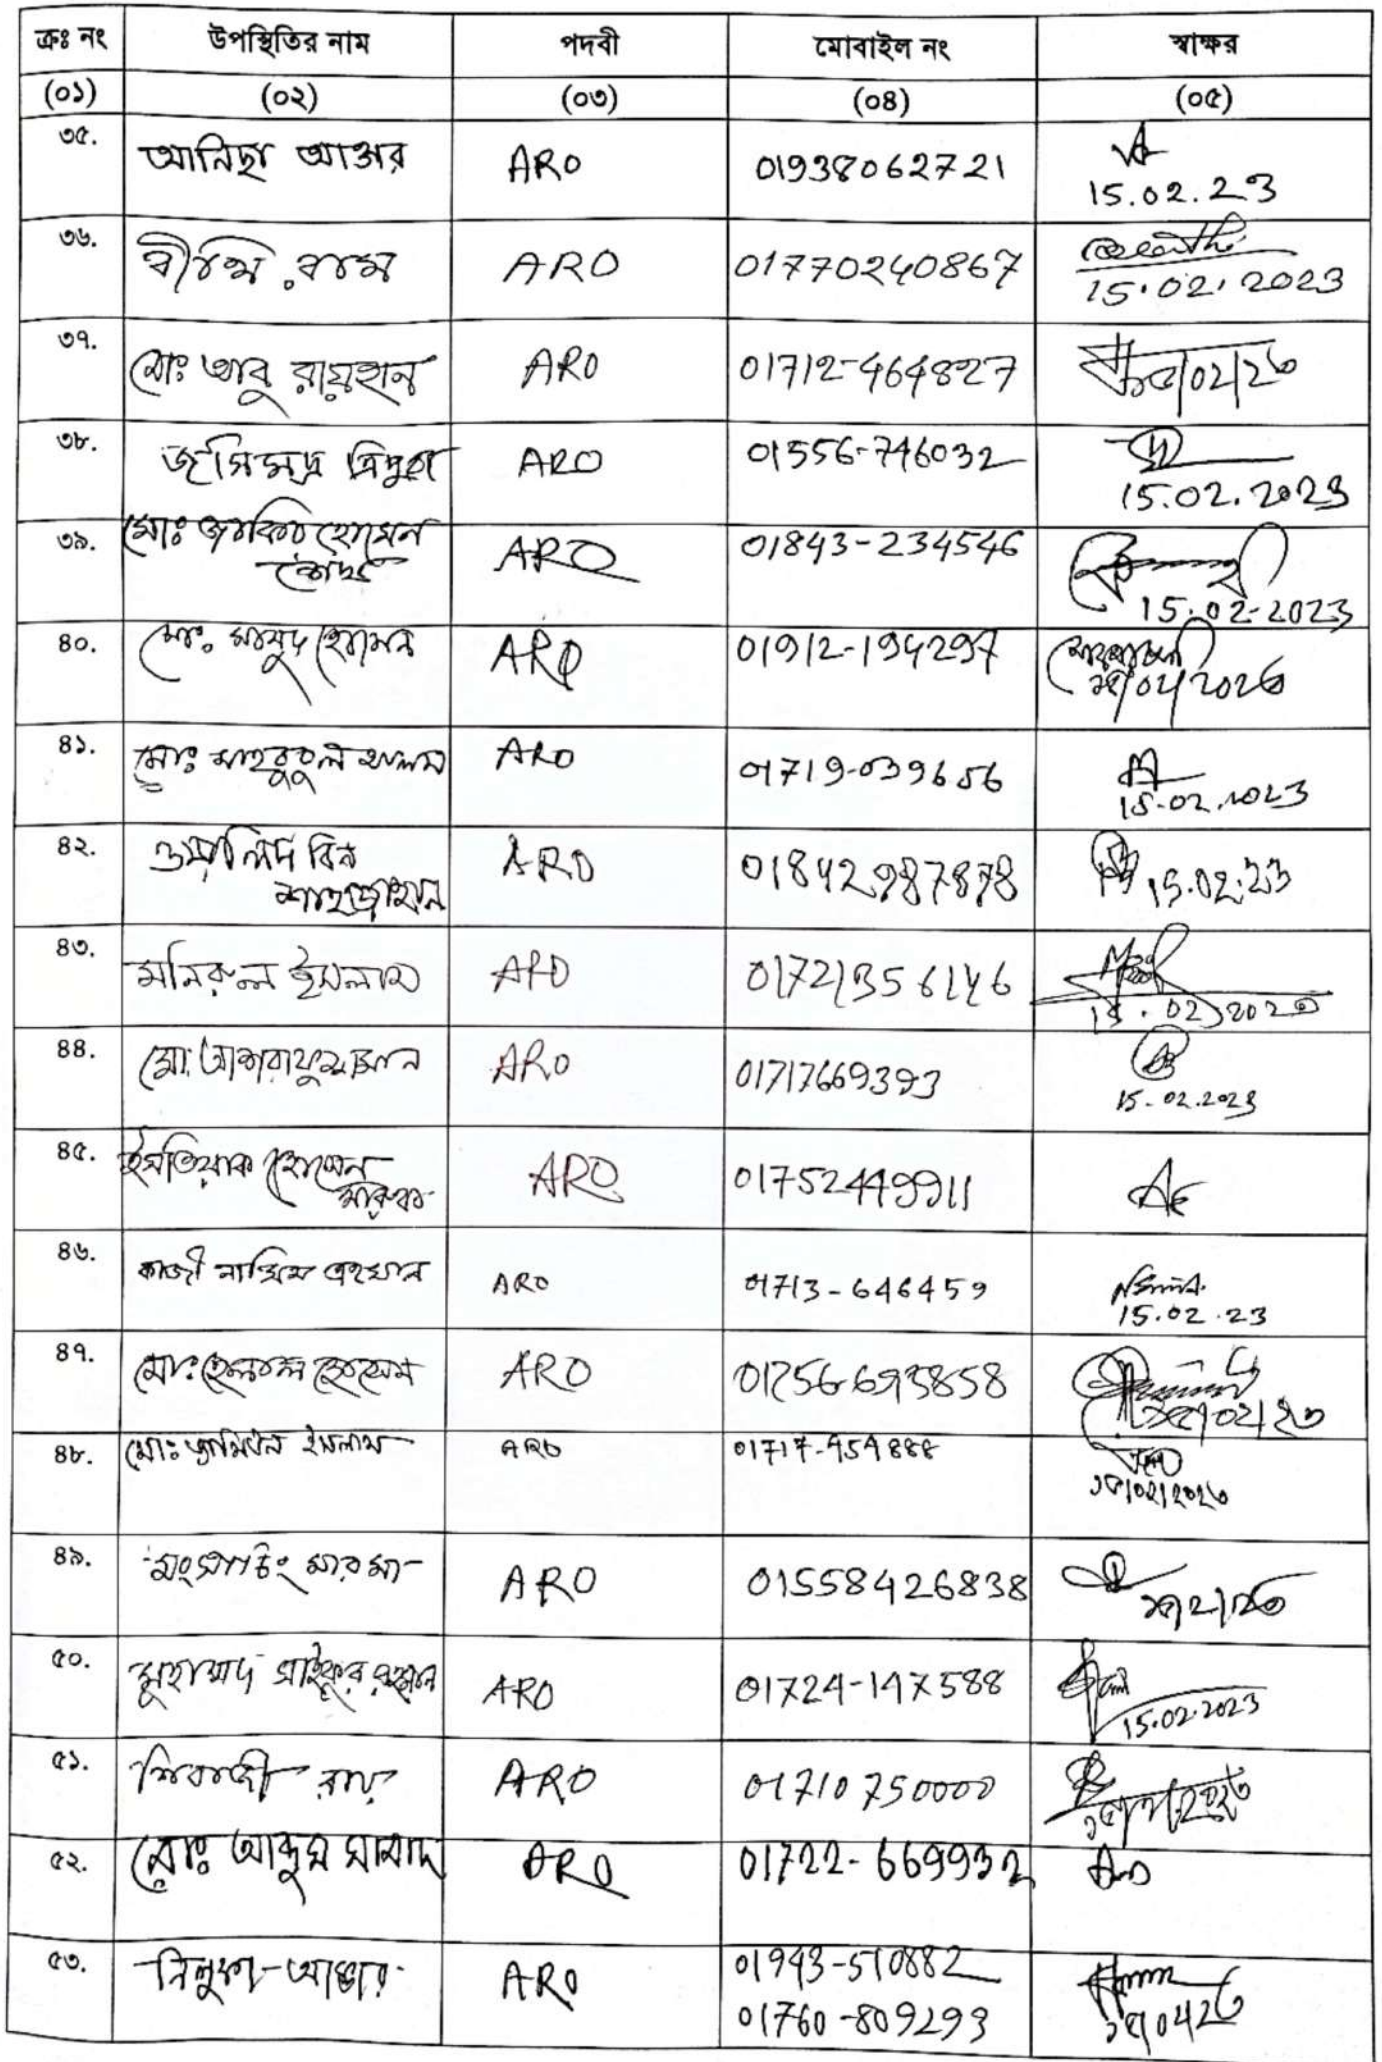 ক্রঃ নং উপস্থিতির নাম পদবী মোবাইল নং স্বাক্ষর
(০১) (০২) (০৩) (০৪) (০৫)
৩৫. আনিছা আক্তার ARO 01938062721
15.02.23
৩৬. ARO 01770240867
15.02.2023
৩৭. মোঃ আবু রায়হান ARO 01712-464827
৩৮. ত্রিপুরা ARO 01556-746032
15.02.2023
৩৯. মোঃ জাকির হোসেন ARO 01843-234546
15.02-2023
৪০. মোঃ মাসুদ হোসেন ARO 01912-194297
৪১. মোঃ মাহবুবুল আলম ARO 01719-039656
15.02.2023
৪২. ওয়ালিদ বিন ARO 01842987878 15.02.23
শাহজাহান
৪৩. মনিরুল ইসলাম ARO 01721356146
৪৪. মোঃ আশরাফুজ্জামান ARO 01717669393
15-02.2023
৪৫. ইসতিয়াক হোসেন ARO 01752449911
৪৬. কাজী নাজিম এহসান ARO 01713-646459
15.02.23
৪৭. মোঃ হেলাল হোসেন ARO 01756693858
৪৮. মোঃ ইসলাম ARO 01717-954888
১৫/০২/২০২৩
৪৯. মারমা ARO 01558426838
৫০. মুহাম্মদ সাইফুর রহমান ARO 01724-147588
15.02.2023
৫১. শিবাজী রায় ARO 01710750000
৫২. মোঃ আব্দুস সামাদ ARO 01722-669932
৫৩. আক্তার ARO 01943-510882
01760-809293